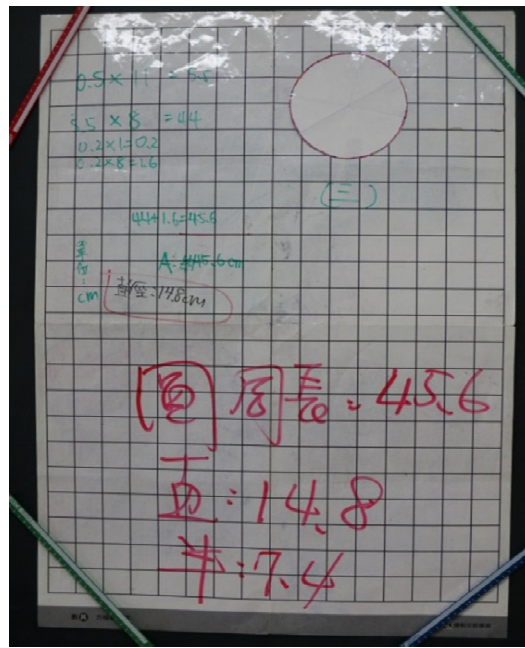 0.5 × 11 = 5.5
5.5 × 8 = 44
0.2×1=0.2
0.2×8=1.6
(三)
44+1.6=45.6
A:45.6cm
單位:cm
直徑:14.8cm
圓周長:45.6
直:14.8
半:7.4